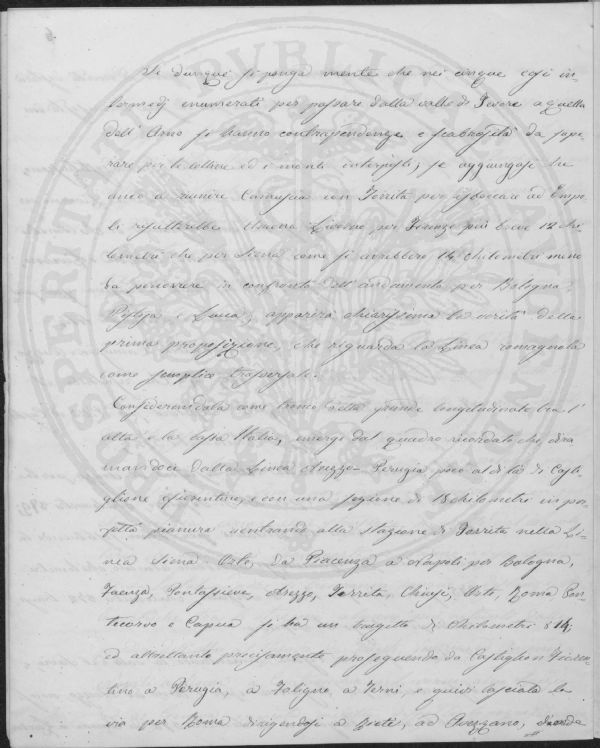 Se dunque si ponga mente che nei cinque casi in-
termedj enumerati per passare dalla valle di Tevere a quella
dell' Arno si hanno contropendenze e scabrosità da supe-
rare per le colline ed i monti interposti; se aggiungasi che
anco a riunire Camuscia con Torrita per isboccare ad Empo-
li risulterebbe Livorno per Firenze più breve 12 chi-
lometri che per Siena come si avrebbero 14 chilometri meno
da percorrere in confronto dell' andamento per Bologna
Pistoja e Lucca, apparirà chiarissima la verità della
prima proposizione, che riguarda la Linea romagnola
come semplice trasversale.
Considerandola come tronco della grande longitudinale tra l'
alta e la bassa Italia, emerge dal quadro ricordato che, dira
mandoci dalla Linea Arezzo-Perugia poco al di là di Casti-
glione fiorentino, e con una sezione di 18 chilometri in per-
fetta pianura rientrando alla stazione di Torrita nella Li-
nea Siena-Orte, da Piacenza a Napoli per Bologna,
Faenza, Pontassieve, Arezzo, Torrita, Chiusi, Orte, Roma Pon-
tecorvo e Capua si ha un tragitto di Chilometri 814;
ed altrettanto precisamente proseguendo da Castiglion Fioren-
tino a Perugia, a Foligno, a Terni, e quivi lasciata la
via per Roma dirigendosi a Rieti, ad Avezzano,